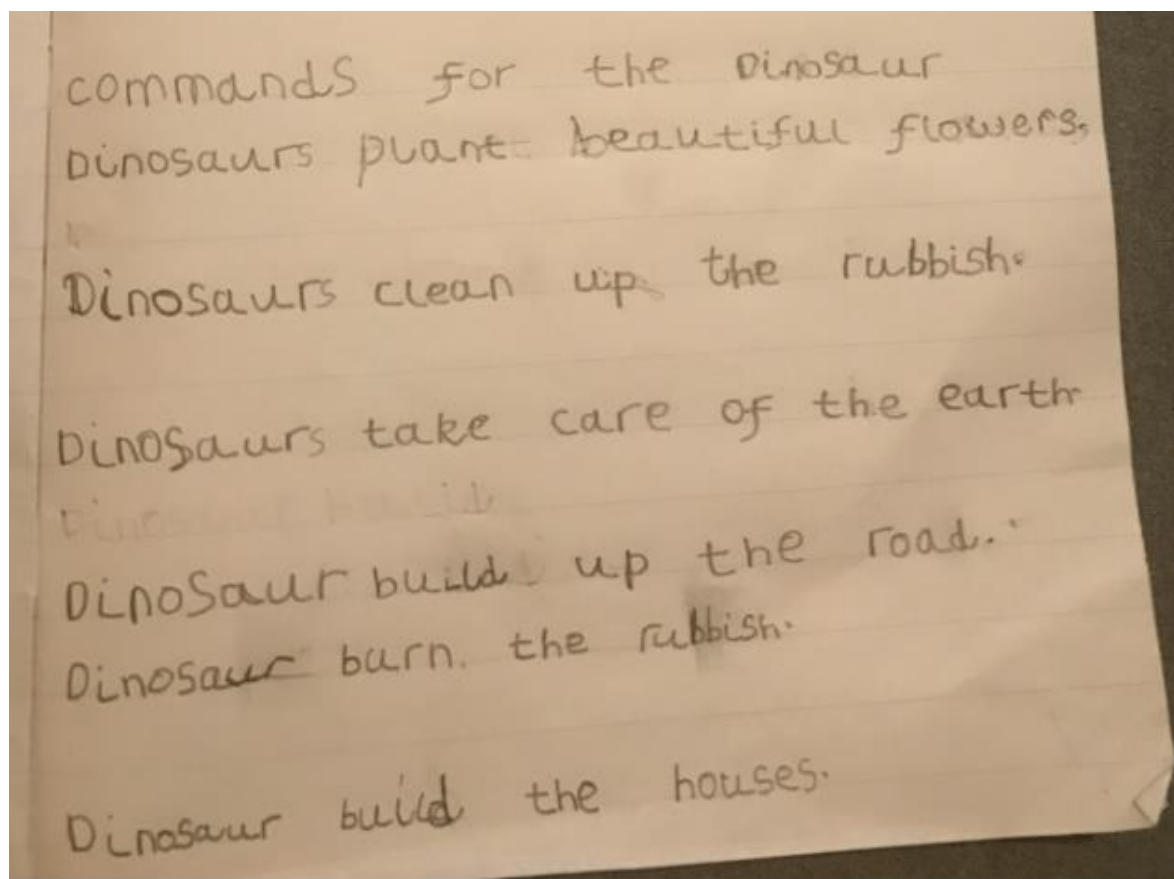 commands for the Dinosaur
Dinosaurs plant beautiful flowers.
Dinosaurs clean up the rubbish.
Dinosaurs take care of the earth
Dinosaur build up the road.
Dinosaur burn. the rubbish.
Dinosaur build the houses.